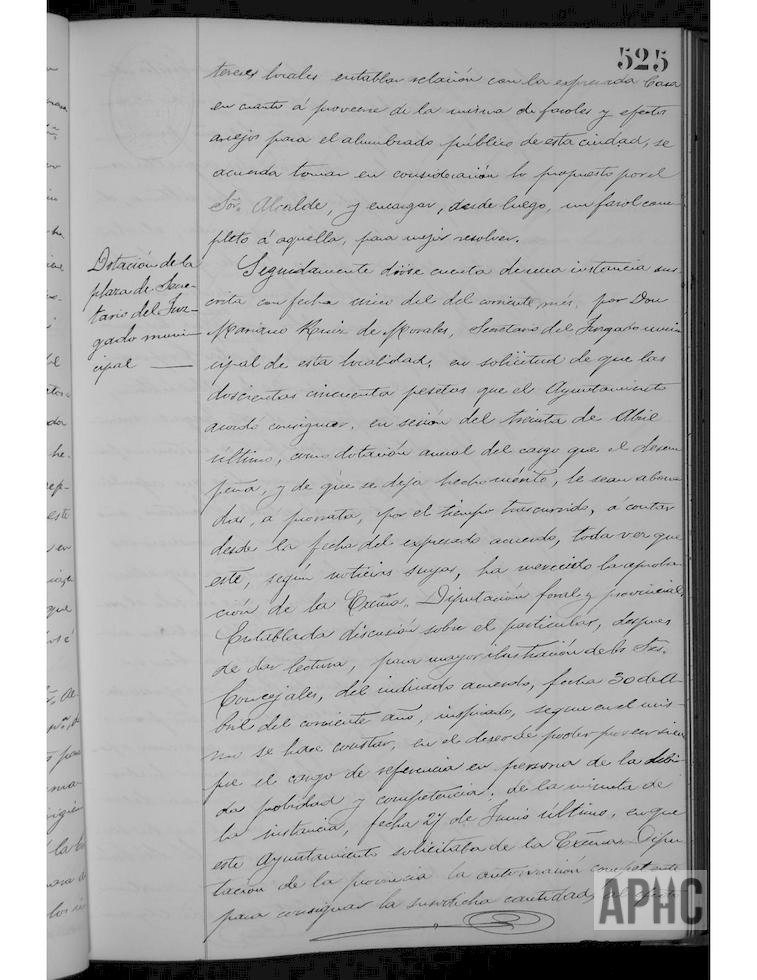 525
tereses locales entablar relación con la expresada Casa
en cuanto á proveerse de la misma de faroles y efectos
anejos para el alumbrado público de esta ciudad, se
acuerda tomar en consideración lo propuesto por el
Sor. Alcalde, y encargar, desde luego, un farol com-
pleto á aquella, para mejor resolver.
Dotación de la
plaza de Secre-
tario del Juz-
gado muni-
cipal
Seguidamente dióse cuenta de una instancia sus-
crita con fecha cinco del del corriente mes, por Don
Mariano Ruiz de Morales, Secretario del Juzgado muni-
cipal de esta localidad, en solicitud de que las
doscientas cincuenta pesetas que el Ayuntamiento
acordó consignar, en sesión del treinta de Abril
último, como dotación anual del cargo que el desem
peña, y de que se deja hecho mérito, le sean abona
das, a prorrata, por el tiempo trascurrido, á contar
desde la fecha del expresado acuerdo, toda vez que
este, según noticias suyas, ha merecido la aproba-
ción de la Excma. Diputación foral y provincial,
Entablada discusión sobre el particular, despues
de dar lectura, para mayor ilustración de los Sres.
Concejales, del indicado acuerdo, fecha 30 de A-
bril del corriente año, inspirado, segun en el mis-
mo se hace constar, en el deseo de poder proveer siem
pre el cargo de referencia en persona de la debi-
da probidad y competencia; de la minuta de
la instancia, fecha 27 de Junio último, en que
este Ayuntamiento solicitaba de la Excma. Dipu-
tación de la provincia la autorización competente
para consignar la susodicha cantidad,
APHC